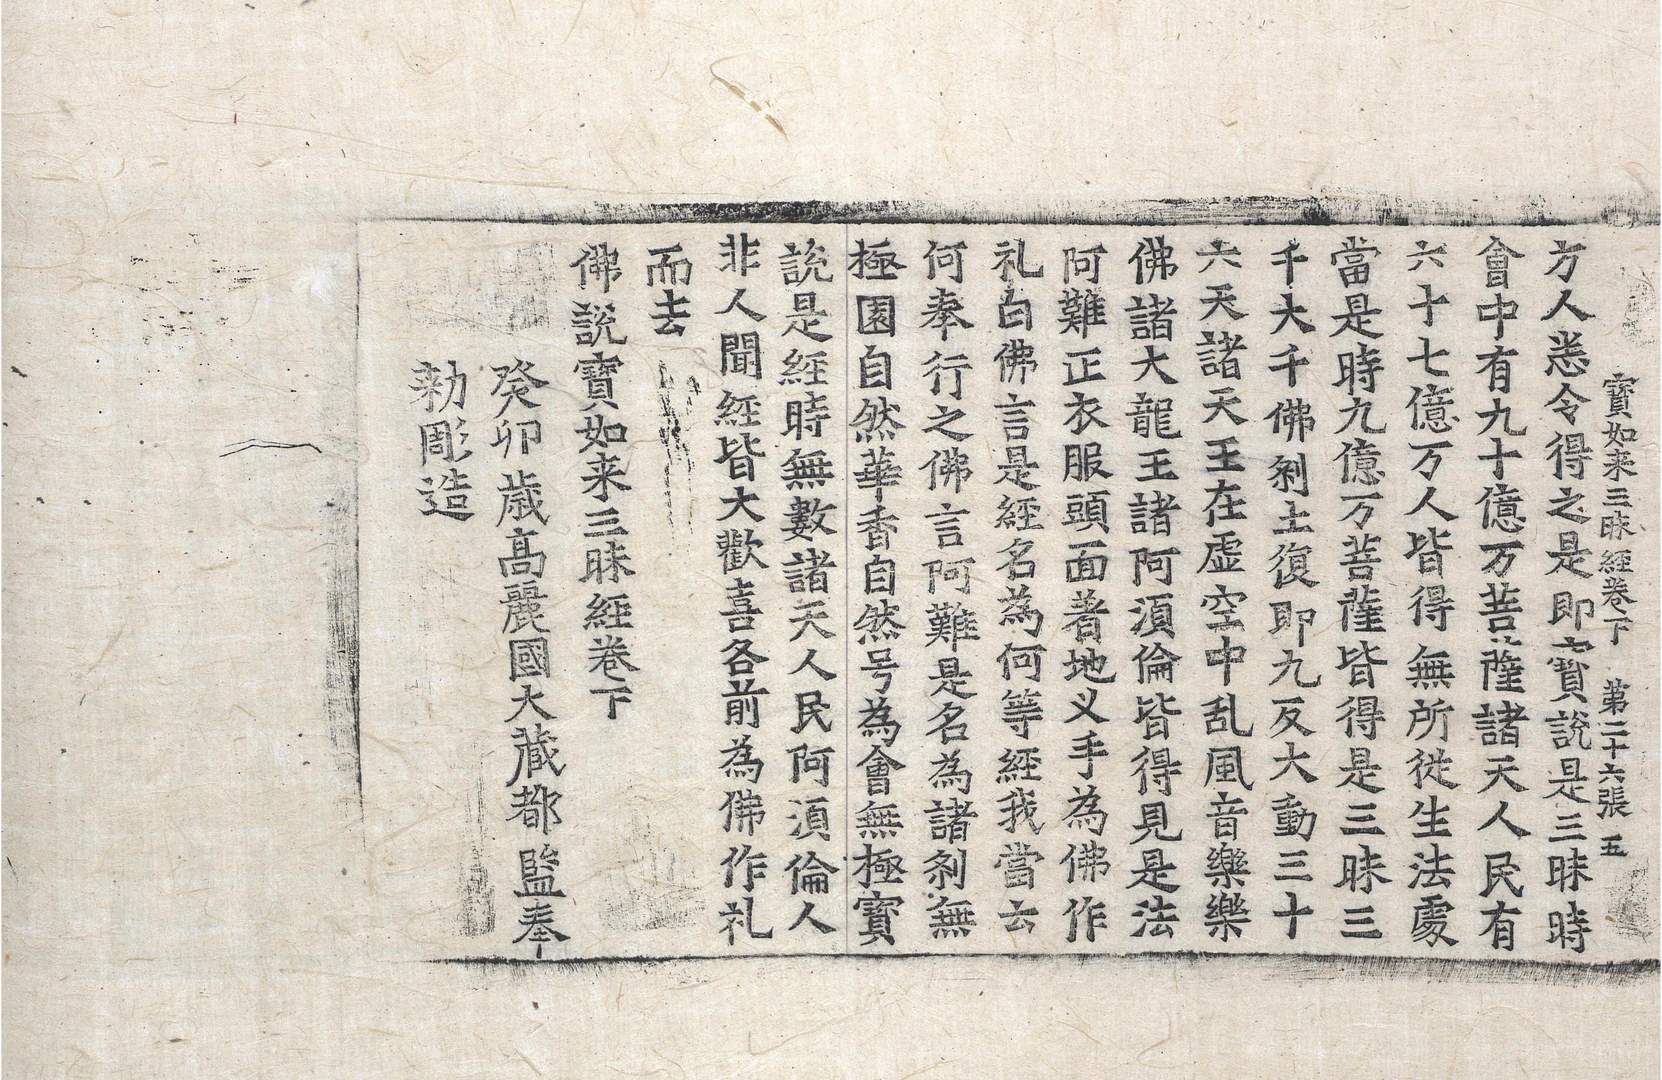 寶如来三昧經卷下　第二十六張　五
方人悉令得之是即寶說是三昧時
會中有九十億万菩薩諸天人民有
六十七億万人皆得無所從生法處
當是時九億万菩薩皆得是三昧三
千大千佛剎土復即九反大動三十
六天諸天王在虛空中乱風音樂樂
佛諸大龍王諸阿須倫皆得見是法
阿難正衣服頭面著地义手為佛作
礼白佛言是經名為何等經我當云
何奉行之佛言阿難是名為諸剎無
極園自然華香自然号為會無極寶
說是經時無數諸天人民阿須倫人
非人聞經皆大歡喜各前為佛作礼
而去
佛說寶如来三昧經卷下
癸卯歲高麗國大藏都監奉
勑彫造